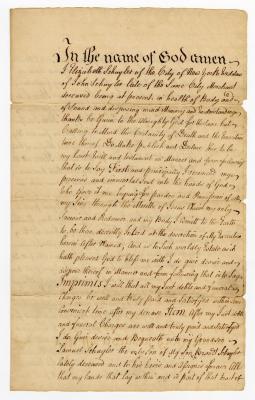 In the name of God amen
I Elizabeth Schuyler of the City of New York Widdow
of John Schuyler late of the Same City Merchant
deceased being at present in health of Body and
of Sound and disposing mind Memory and Understanding
thanks be Given to the Almighty God for the Same but
Calling to Mind the Certainty of Death and the Uncertain
time thereof Do Make publish and Declare this to be
my Last Will and testament in Manner and form following
that is to Say First and principally I recommend my
precious and immortal Soul into the hands of God
who Gave it me hoping for pardon and Remission of all
my Sins through the Merits of Jesus Christ my only
Saviour and Redeemer and my Body I Commit to the Earth
to be there decently Interd at the discretion of My Executors
herein After Named, and as to Such worldly Estate wich
hath pleased God to bless me with I do give devise and
dispose thereof in Manner and form following that is to Say
Imprimis I will that all my Just debts and funeral
charges be well and truly paid and Satisfied within some
convenient time after my decease Item After my Just debts
and funeral Charges are well and truly paid and Satisfied
I do Give devise and Bequeath unto my Grandson
Samuel Schuyler the eldest Son of My Son Schuyler
lately deceased and to his heirs and assignes for ever All
that my lands that lay within and is part of that tract of